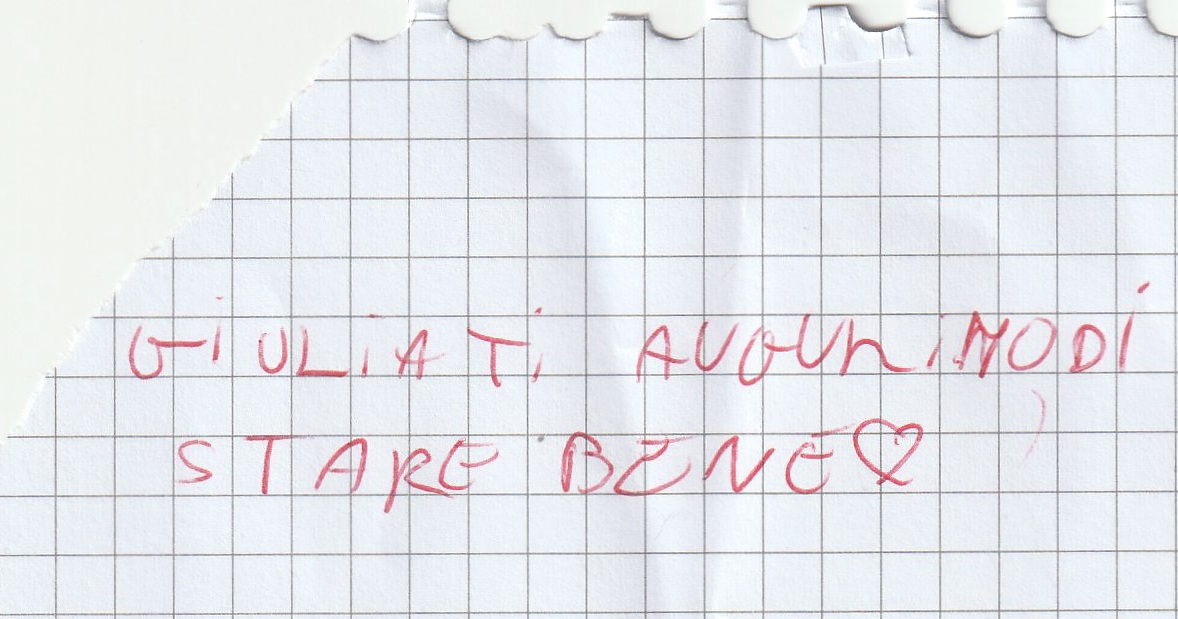 GIULIA TI AUGURiMODi
STARE BENE♡